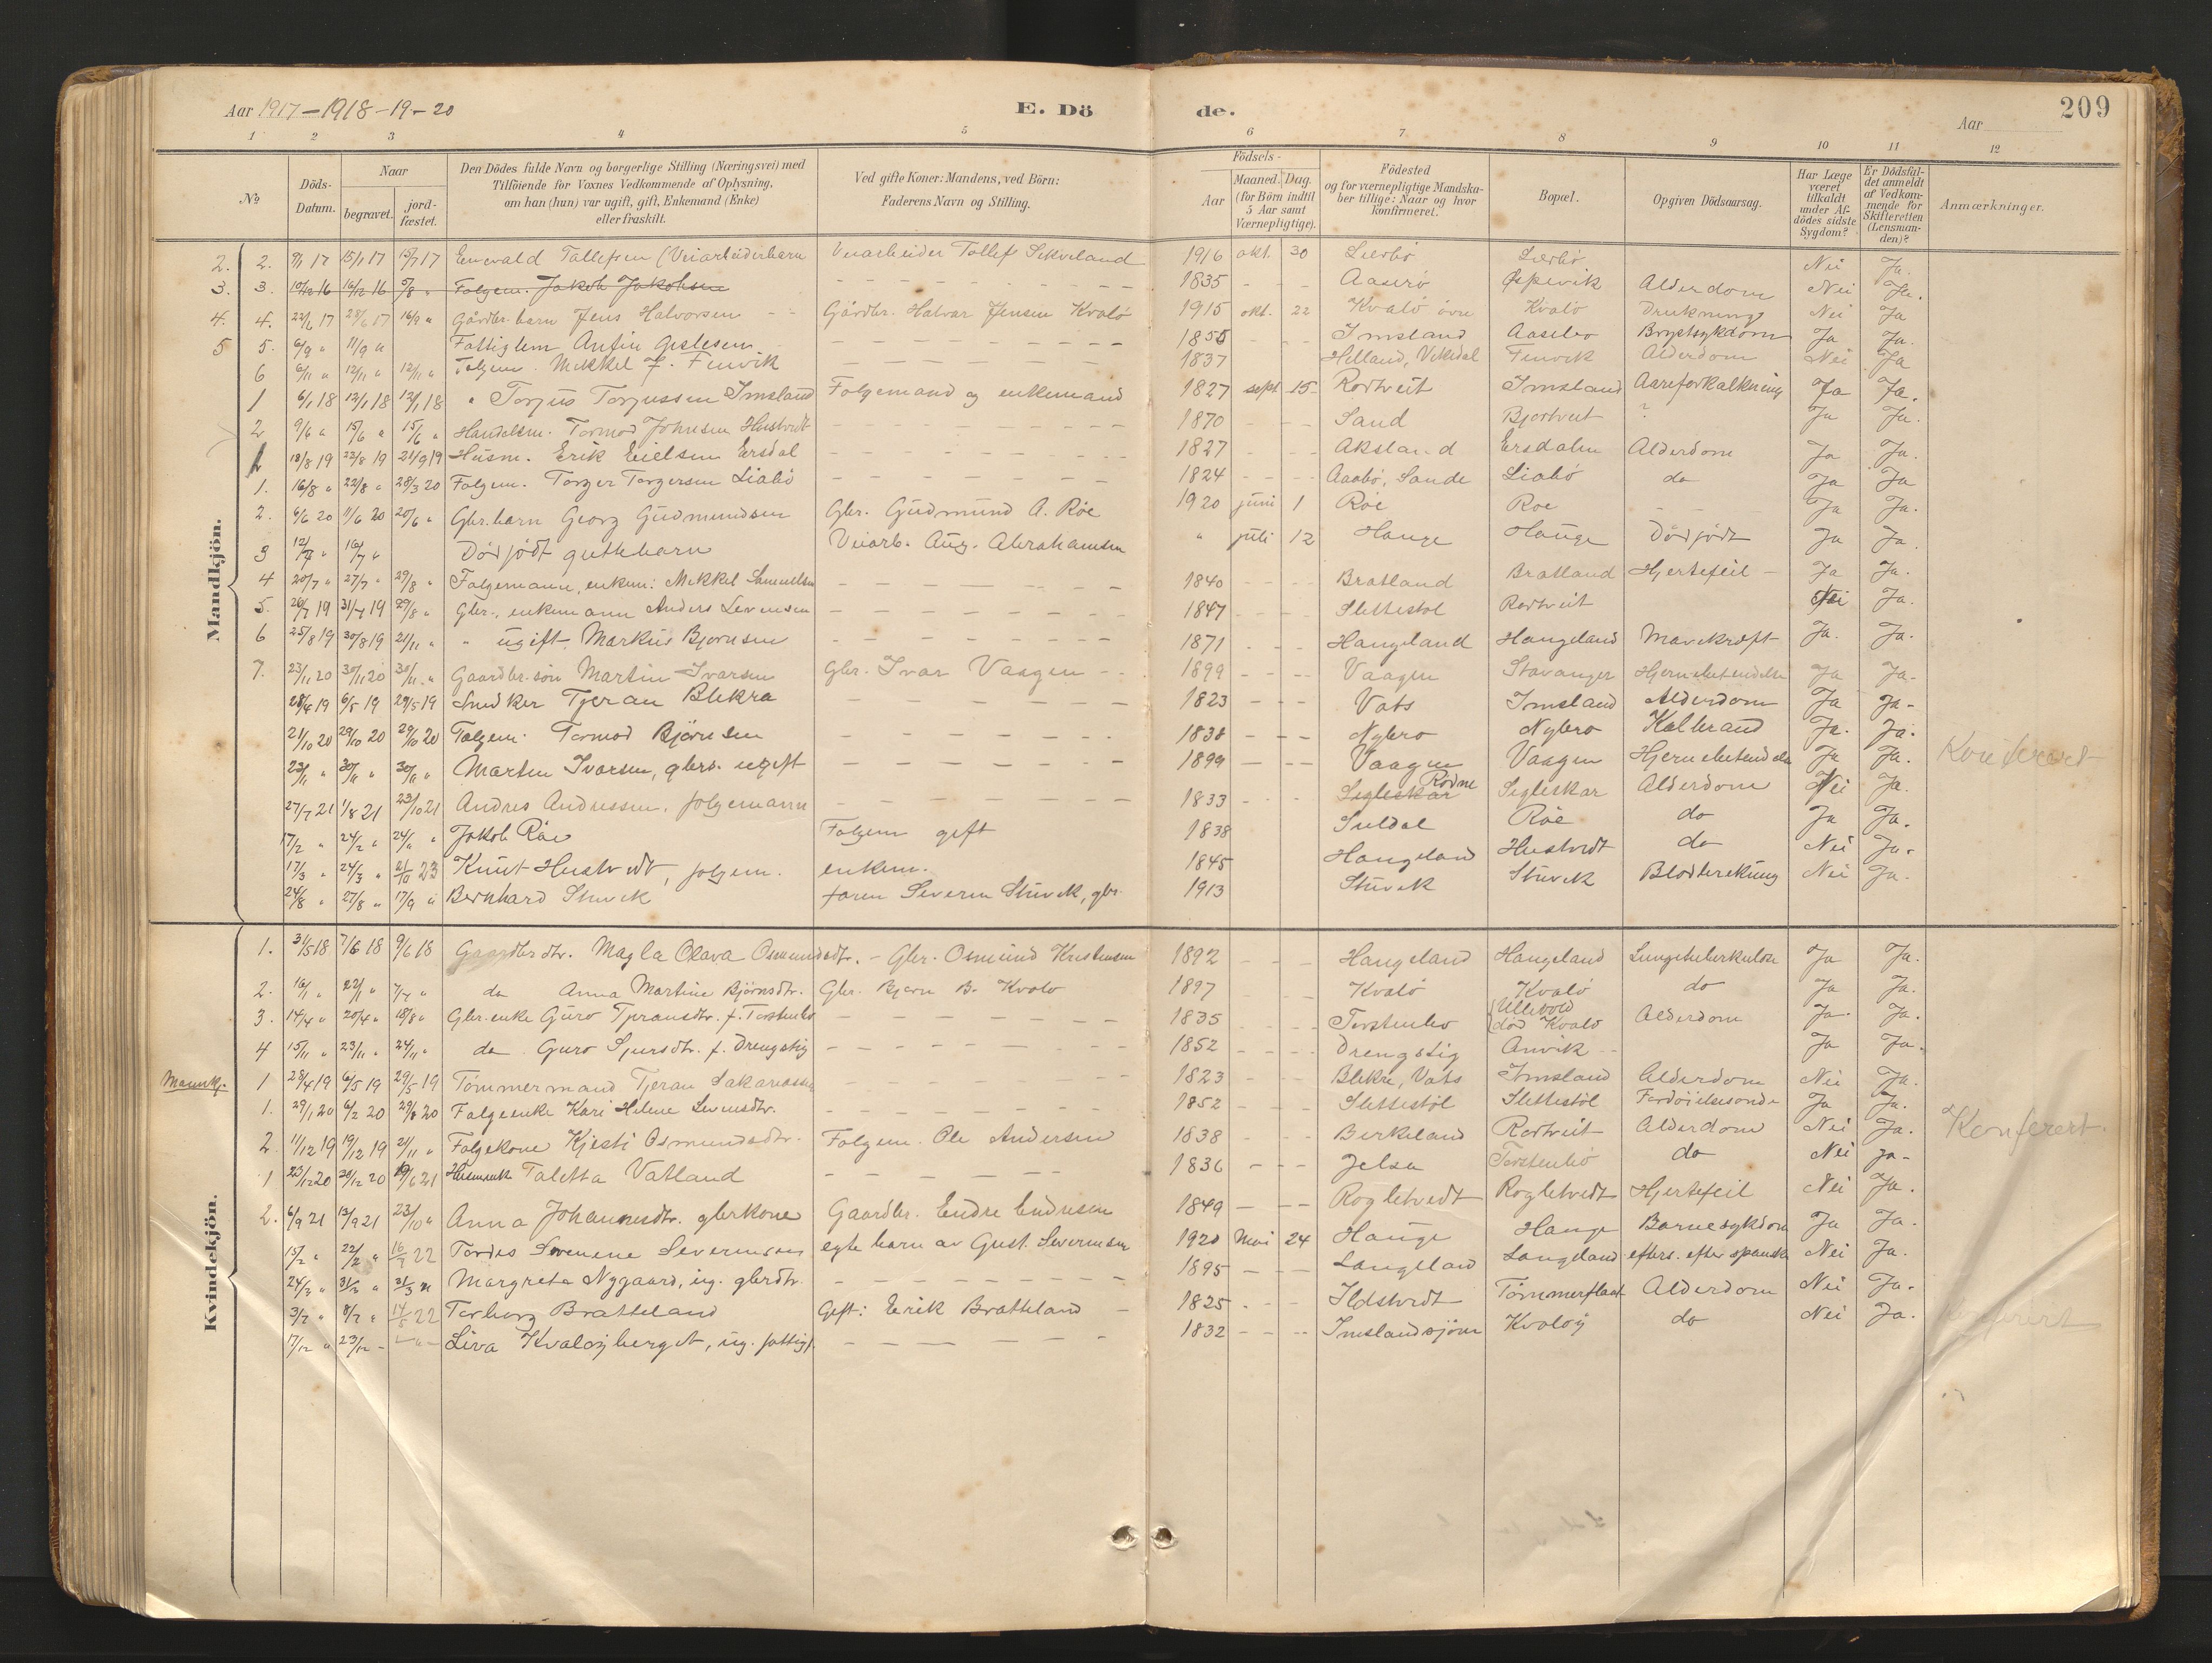 Aar 1917-1918-19-20
E. Dö de.
Aar
209
1 2 3 4 5 6 7 8 9 10 11 12
No
Döds-Datum.
Naar
begravet.
jord-fæstet.
Den Dödes fulde Navn og borgerlige Stilling (Næringsvei) med
Tilföiende for Voxnes Vedkommende af Oplysning,
om han (hun) var ugift, gift, Enkemand (Enke)
eller fraskilt.
Ved gifte Koner: Mandens, ved Börn:
Faderens Navn og Stilling.
Födsels-
Aar
Maaned. Dag.
(for Börn indtil
5 Aar samt
Værnepligtige).
Födested
og for værnepligtige Mandska-
ber tillige: Naar og hvor
konfirmeret.
Bopæl.
Opgiven Dödsaarsag.
Har Læge
været
tilkaldt
under Af-
dödes sidste
Sygdom?
Er Dödsfal-
det anmeldt
af Vedkom-
mende for
Skifteretten
(Lensman-
den)?
Anmærkninger.
Mandkjön.
2. 2. 9/1 17 15/1 17 15/7 17 Tollefsen (Veiarbeiderbarn Veiarbeider Tollef 1916 okt. 30 Nei Ja.
3. 3. 10/12 16 16/12 16 5/8 " Folgem. Jakob Jakobsen - - - 1835 - - Aaserö Espevik Alderdom Nei Ja.
4. 4. 22/6 17 28/6 17 16/9 " Gårdbr. barn Jens Halvorsen - - Gårdbr. Halvar Jensen Kvalö 1915 okt. 22 Kvalö övre Kvalö Drukning Nei Ja
5 5. 6/9 " 11/9 " Fattiglem Anfin - - - 1855 - - Imsland Aasebo Brystsykdom Ja Ja.
6 6/11 " 12/11 " 12/11 " Folgem. Mikkel J. Fenvik - - - 1837 Helland, Vikedal Fenvik Alderdom Nei Ja
1 6/1 18 12/1 18 12/1 18 " Torjus Torjussen Imsland Folgemand og enkemand 1827 sept 15 Rortveit Imsland Aareforkalkning Ja Ja.
2 9/6 " 15/6 " 15/6 " Handelsm. Tormod Johnsen Hustvedt - - - 1870 - - Sand Bjortveit ? Ja Ja.
1 18/8 19 23/8 19 21/9 19 Husm. Erik Eielsen Ersdal - - - 1827 - - Aksland Ersdalen Alderdom Ja Ja.
1. 16/8 " 22/8 " 28/3 20 Folgem. Torger Torgersen Liabö - - - 1824 - - Aabö, Sande Liabö do Ja Ja
2. 6/6 20 11/6 20 20/6 " Gbr. barn Georg Gudmundsen Gbr. Gudmund A. Röe 1920 juni 1 Röe Roe - - Ja Ja.
3 12/7 " 16/7 " Dödfödt guttebarn Veiarb. Aug. Abrahamsen " juli 12 Hauge Hauge Dödfödt Ja Ja.
4 20/7 " 27/7 " 29/8 " Folgemann, enkem: Mikkel Samuelsen - - - 1840 - - Bratland Bratland Hjertefeil - Ja Ja.
5. 26/7 19 31/7 19 29/8 " Gbr., enkemann Anders - - - 1847 - - Slettestöl Rortveit Nei Ja.
6 25/8 19 30/8 19 21/11 " " ugift Markus Bjornsen - - - 1871 - - Hangeland Hangeland Mavekræft Ja. Ja.
7. 23/11 20 30/11 20 30/11 " Gaardbr. sön Martin Ivarsen Gbr. Ivar Vaagen - - 1899 - - Vaagen Stavanger Hjernebetendelse Ja Ja.
28/4 19 6/5 19 29/5 19 Snedker Tjeran Blikra - - - 1823 - - Vats Imsland Alderdom Ja Ja-
21/10 20 29/10 20 29/10 20 Folgem. Tormod Björnsen - - - 1838 - - Nybro Nybro Kolbrand Ja. Ja.
23/11 " 30/11 " 30/11 " Martin Ivarsen, gbrs. ugift - - - 1899 - - Vaagen Vaagen Hjernebetendelse Ja Ja. Konferert
27/7 21 1/8 21 23/10 21 Andres Andressen, folgemann - - - 1833 - - Segleskar Rodne Segleskar Alderdom Nei Ja.
17/2 " 24/2 " 24/ " Jakob Röe Folgem gift 1838 Suldal Röe do Ja Ja.
17/3 " 24/3 " 21/10 23 Knut Hustvedt, folgem. enkem. 1845 Hangeland Hustvedt do Nei Ja.
24/8 " 27/8 " 17/9 " Bernhard Stuvik faren Severin Stuvik, gbr. 1913 Stuvik Stuvik Blodtrekning Nei Ja.
Kvindekjön.
1. 31/5 18 7/6 18 9/6 18 Gaardbrdtr. Magla Olava Osmundsdtr. - Gbr. Osmund Kristensen 1892 - - Hangeland Hangeland Lungetuberkulose Ja Ja.
2. 16/1 " 22/1 " 7/4 " do Anna Martine Björnsdtr. Gbr. Bjorn B. Kvalo 1897 - - Kvalö Kvalö do Ja Ja.
3. 14/4 " 20/4 " 18/8 " Gbr. enke Guro Tjeransdtr. f. Torstenbo - - - 1835 - - Torstenbo Ullevold död Kvalö Alderdom Ja. Ja.
4 15/11 " 23/11 " 24/11 " do Guro Sjursdtr. f. Drengstig - - - 1852 - - Drengstig Anvik - - Ja Ja.
Mannkj. 1 28/4 19 6/5 19 29/5 19 Tömmermand Tjeran Sakariassen - - - 1823 - - Blikre, Vats Imsland Alderdom Nei Ja.
1. 29/1 20 6/2 20 29/8 20 Folgeenke Kari Helene - - - 1852 - - Slettestöl Slettestöl Ja Ja.
2 11/12 19 19/12 19 21/11 " Folgekone Kjesti Osmundsdtr. Folgem. Ole Andersen 1838 - - Birkeland Rortveit Alderdom Nei Ja. Konferert.
1 23/12 20 20/12 20 19/6 21 Husmenk Taletta Vatland - - - 1836 - - Jelsa Torstenbö do Nei Ja-
2. 6/9 21 13/9 21 23/10 " Anna Johannesdtr. gbrkone Gaardbr. Endre Endresen 1849 - - Rogletvedt Rogletvedt Hjertefeil Nei Ja.
15/2 " 22/2 " 16/ 22 Tordis egte barn av Gust. Severinsen 1920 Mai 24 Hauge Hauge Barnesykdom Ja Ja.
24/3 " 31/3 " 31/3 " Margreta Nygaard, ug. gbrdtr. - - - 1895 - - Langeland Langeland efters. efter spanske Nei Ja.
3/7 " 8/7 " 14/ 22 Torborg Bratteland Gift: Erik Bratteland - 1825 - - Ildstvedt Tömmerflaat Alderdom Nei Ja.
17/12 " 23/12 - Liva Kvaløjberget, ug. fattigl. - - - 1832 - - Imslandsjöen Kvaløy do Nei Ja.